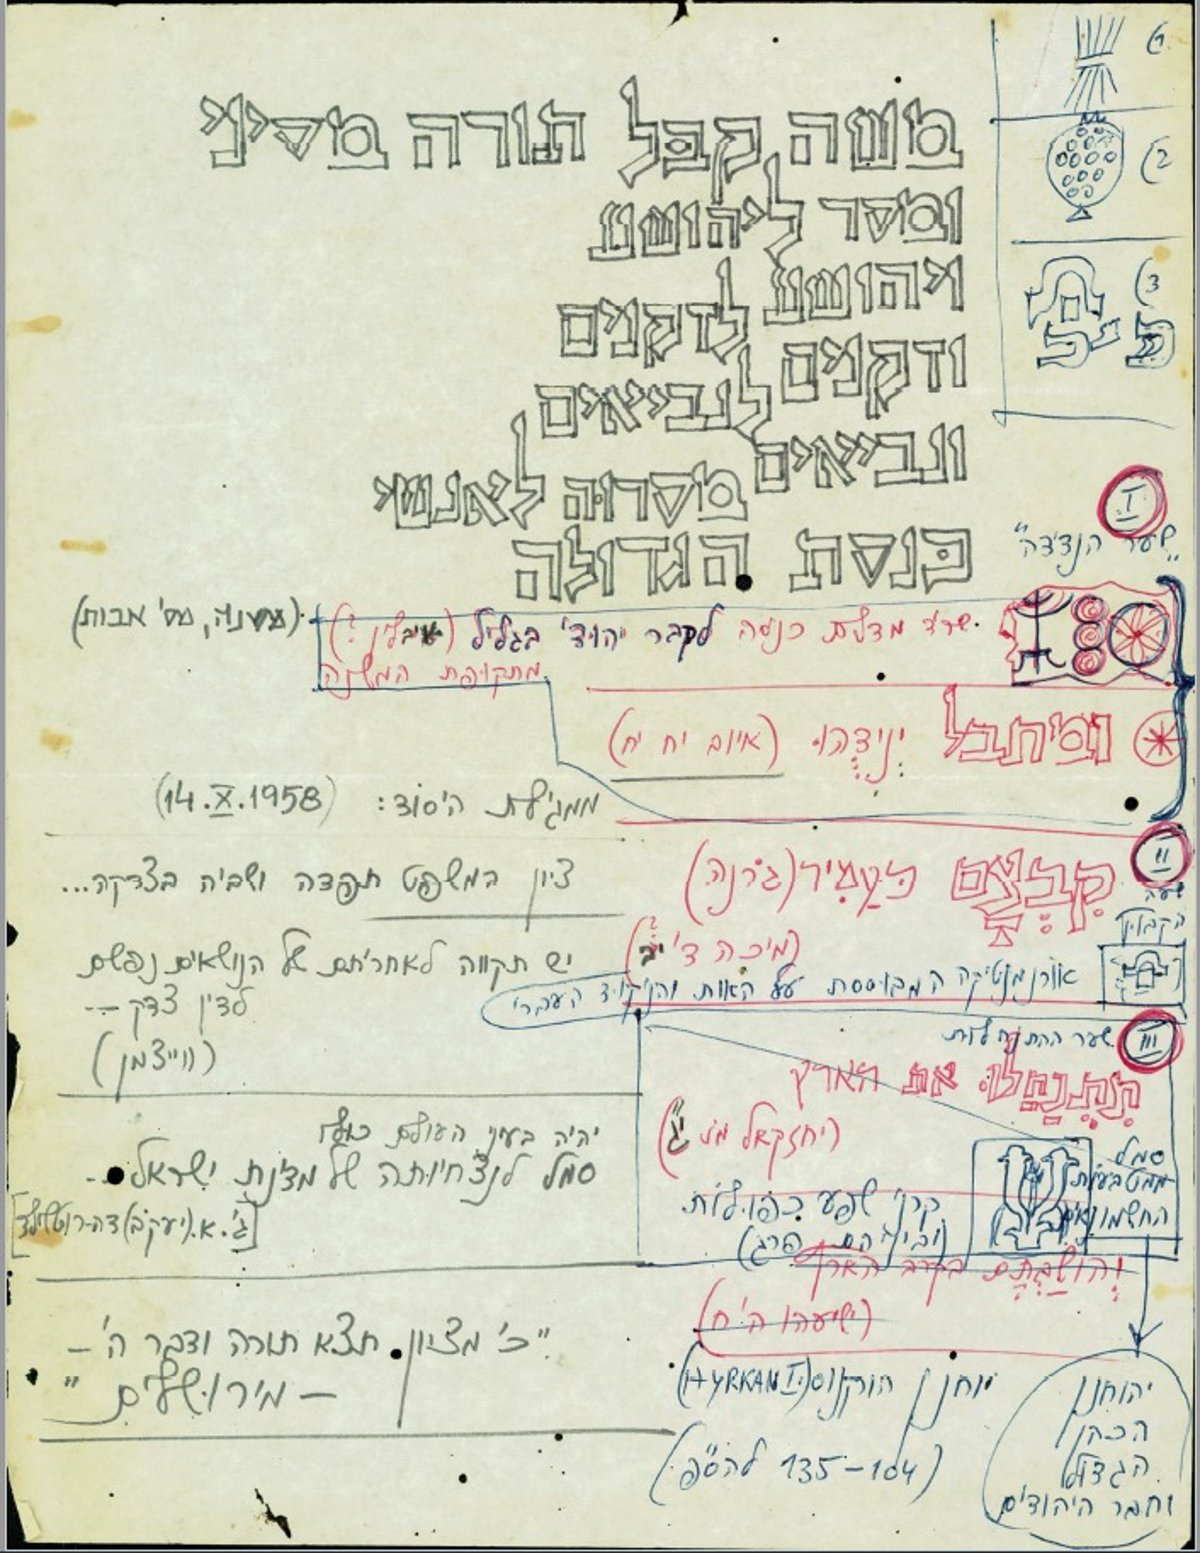 משה קבל תורה מסיני
ומסר ליהושע
ויהושע לזקנים
וזקנים לנביאים
ונביאים מסרוה לאנשי
כנסת הגדולה
(משנה, מס' אבות)
1)
2)
3)
I
"שער הנדידה"
שריד מדלת כנסה לקבר יהודי בגליל
מתקופת המשנה
ומיתבל יְנִידֻּהוּ (איוב יח יח)
II
שער
הקבוץ
קִבְּצָם כֶּעָמִיר (גֹּרְנָה)
(מיכה ד' יב)
אורנמנטיקה המבוססת על האות והניקוד העברי
III
שער ההתנחלות
תִּתְנַחֲלוּ את הארץ
(יחזקאל מז יג)
סמל
ממטבעות
החשמונאים
קרני שפע כפולות
(וביניהם פרג)
וְהוּשַׁבְתֶּם בקרב הארץ
(ישעהו ה' ח)
יוחנן הורקנוס (HYRKAN I)
(135–104 להס"פ)
יהוחנן
הכהן
הגדול
וחבר היהודים
ממגילת היסוד: (14.X.1958)
ציון במשפט תפדה ושביה בצדקה...
יש תקווה לאחריתם של הנושאים נפשם
לדין צדק –
(ווייצמן)
יהיה בעיני העולם כולו
סמל לנצחיותה של מדינת ישראל –
[ג'. א. (יעקב) דה-רוטשילד]
"כי מציון תצא תורה ודבר ה' –
– מירושלים"